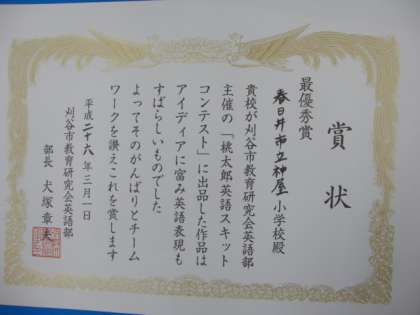 賞状
最優秀賞
春日井市立神屋小学校殿
貴校が刈谷市教育研究会英語部
主催の「桃太郎英語スキット
コンテスト」に出品した作品は
アイディアに富み英語表現も
すばらしいものでした
よってそのがんばりとチーム
ワークを讃えこれを賞します
平成二十六年三月一日
刈谷市教育研究会英語部
部長 犬塚章夫